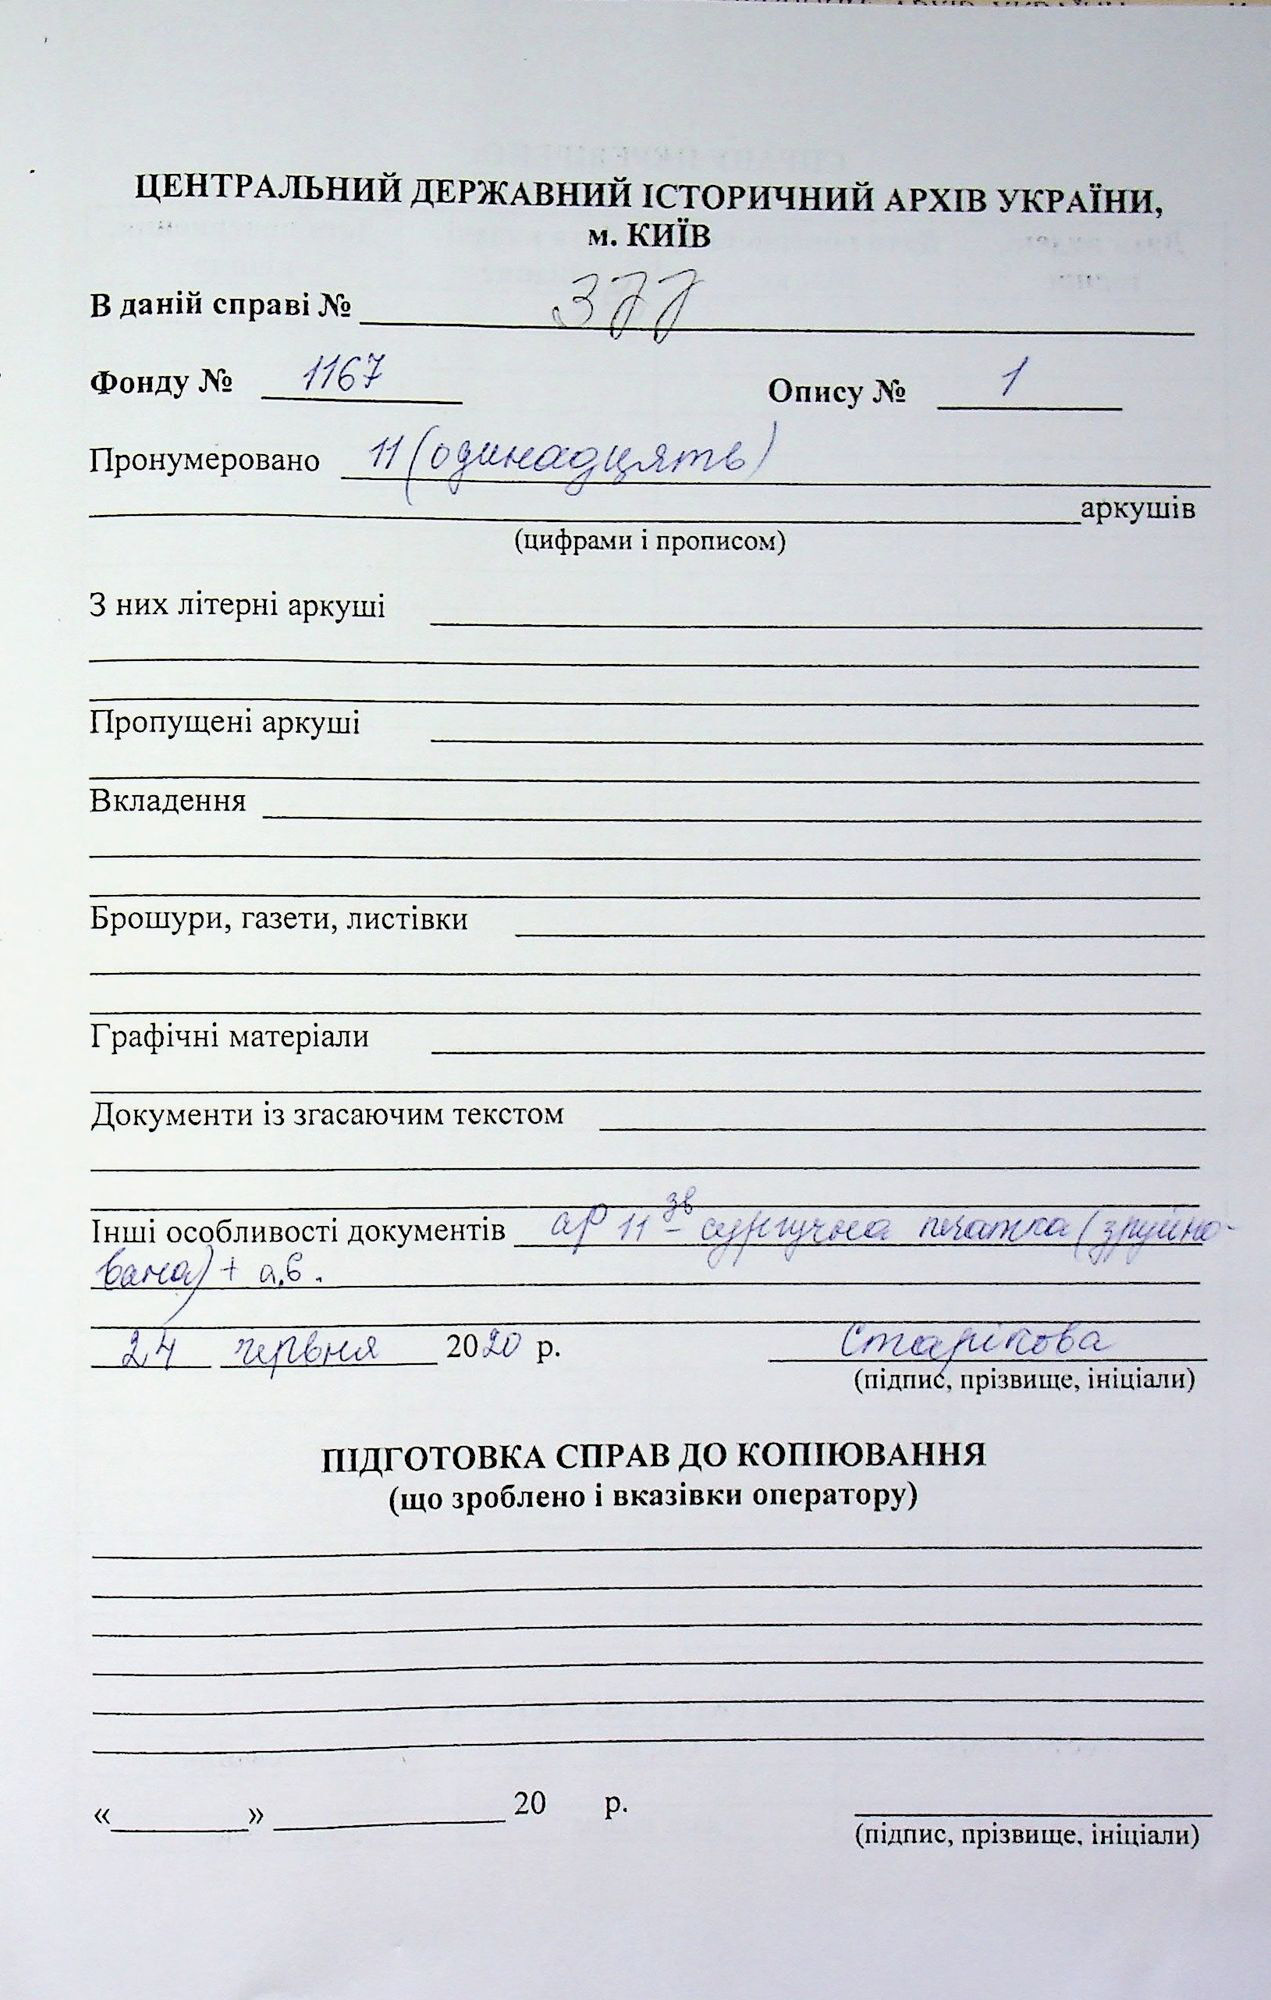 ЦЕНТРАЛЬНИЙ ДЕРЖАВНИЙ ІСТОРИЧНИЙ АРХІВ УКРАЇНИ,
м. КИЇВ
В даній справі № 377
Фонду № 1167 Опису № 1
Пронумеровано 11 (одинадцять)
аркушів
(цифрами і прописом)
З них літерні аркуші
Пропущені аркуші
Вкладення
Брошури, газети, листівки
Графічні матеріали
Документи із згасаючим текстом
Інші особливості документів ар 11 зв – сургучна печатка (зруйно-
вана) + а.6.
24 червня 2020 р. Старікова
(підпис, прізвище, ініціали)
ПІДГОТОВКА СПРАВ ДО КОПІЮВАННЯ
(що зроблено і вказівки оператору)
« » 20 р.
(підпис, прізвище, ініціали)